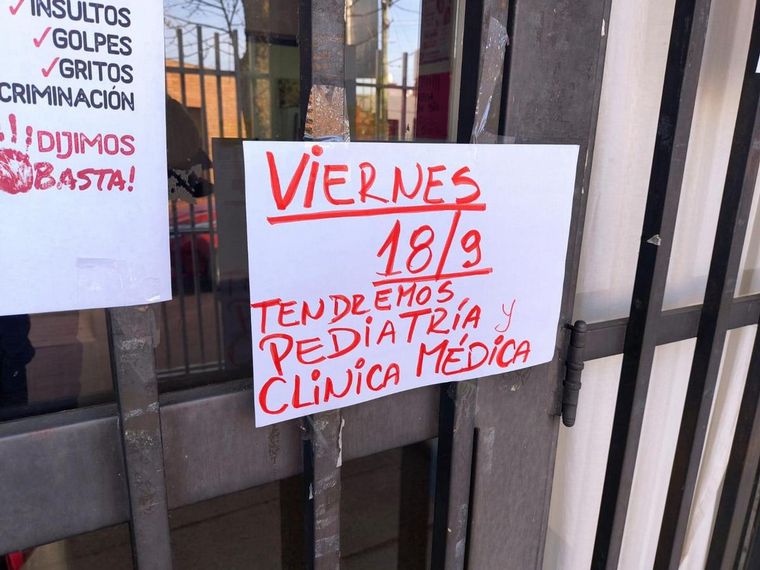 INSULTOS
GOLPES
GRITOS
CRIMINACIÓN
!!! DIJIMOS
BASTA!
VIERNES
18/9
TENDREMOS
PEDIATRÍA y
CLINICA MÉDICA